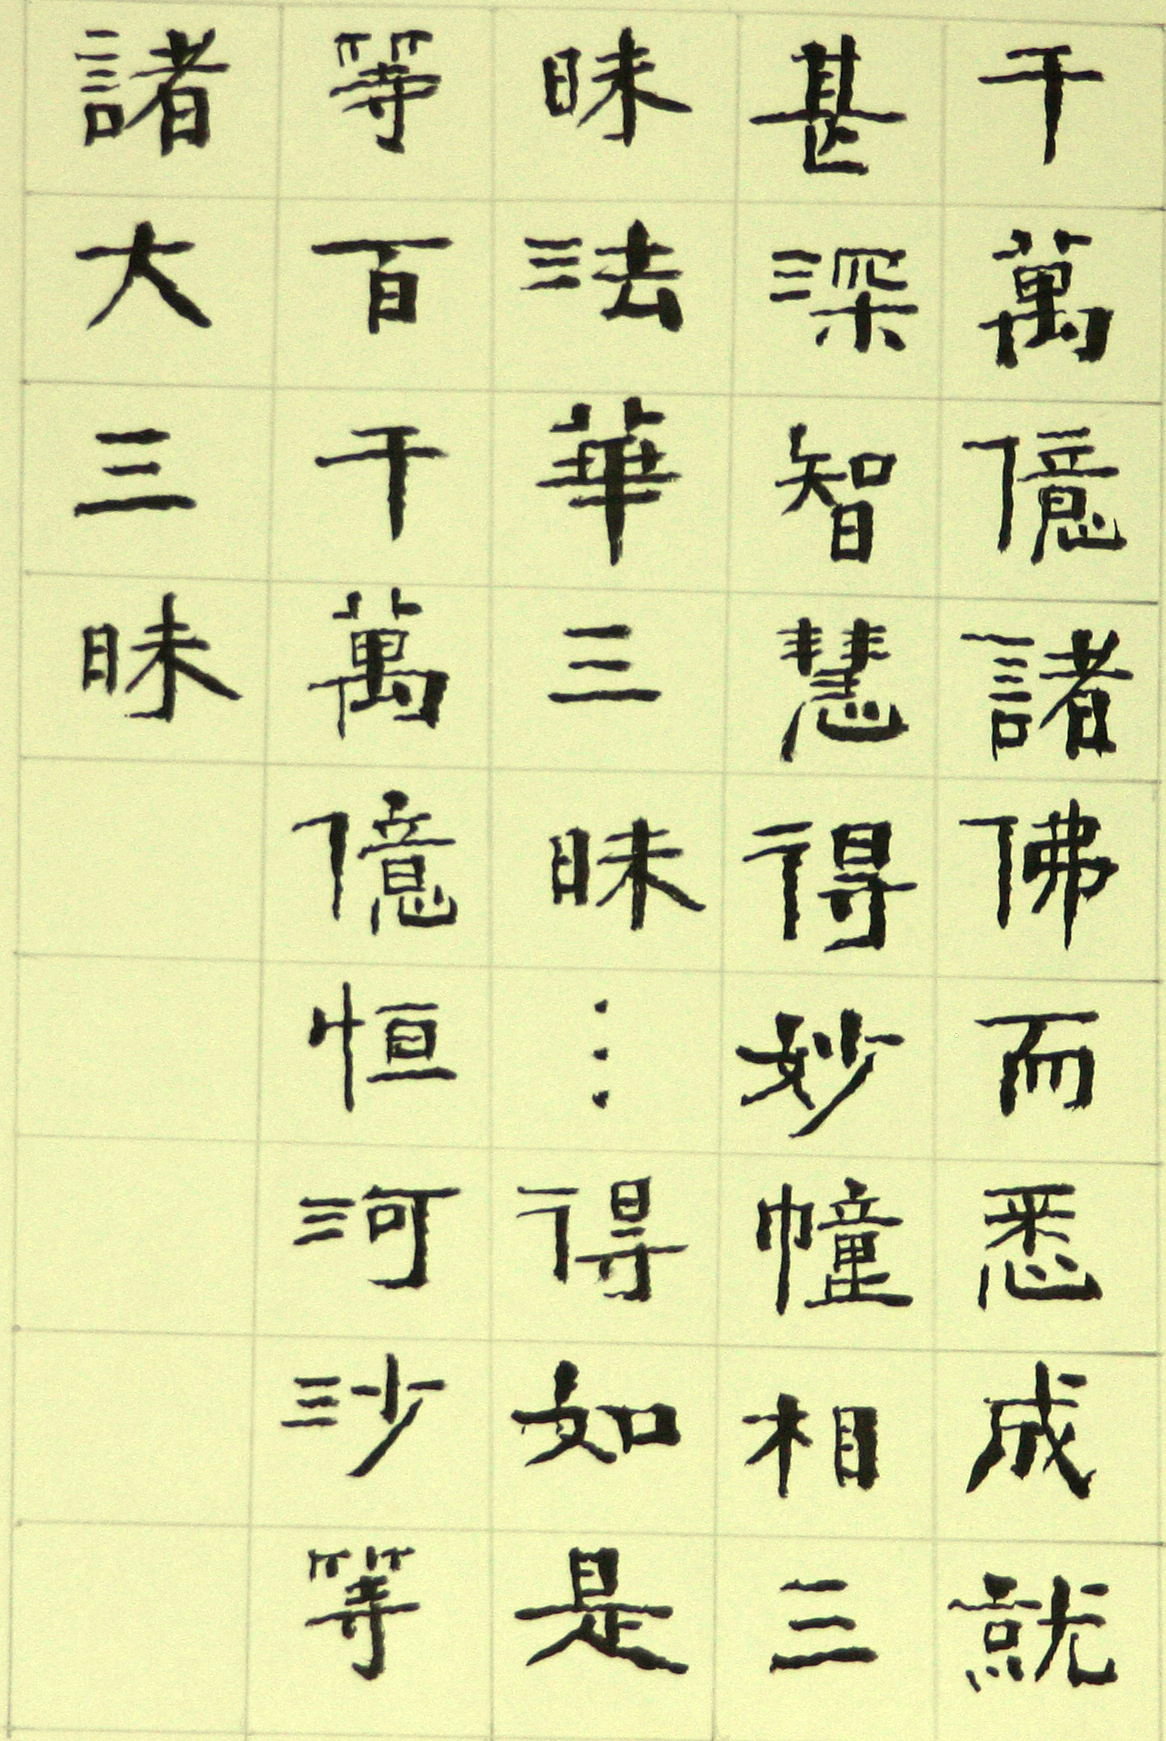 千萬億諸佛而悉成就
甚深智慧得妙幢相三
昧法華三昧…得如是
等百千萬億恒河沙等
諸大三昧